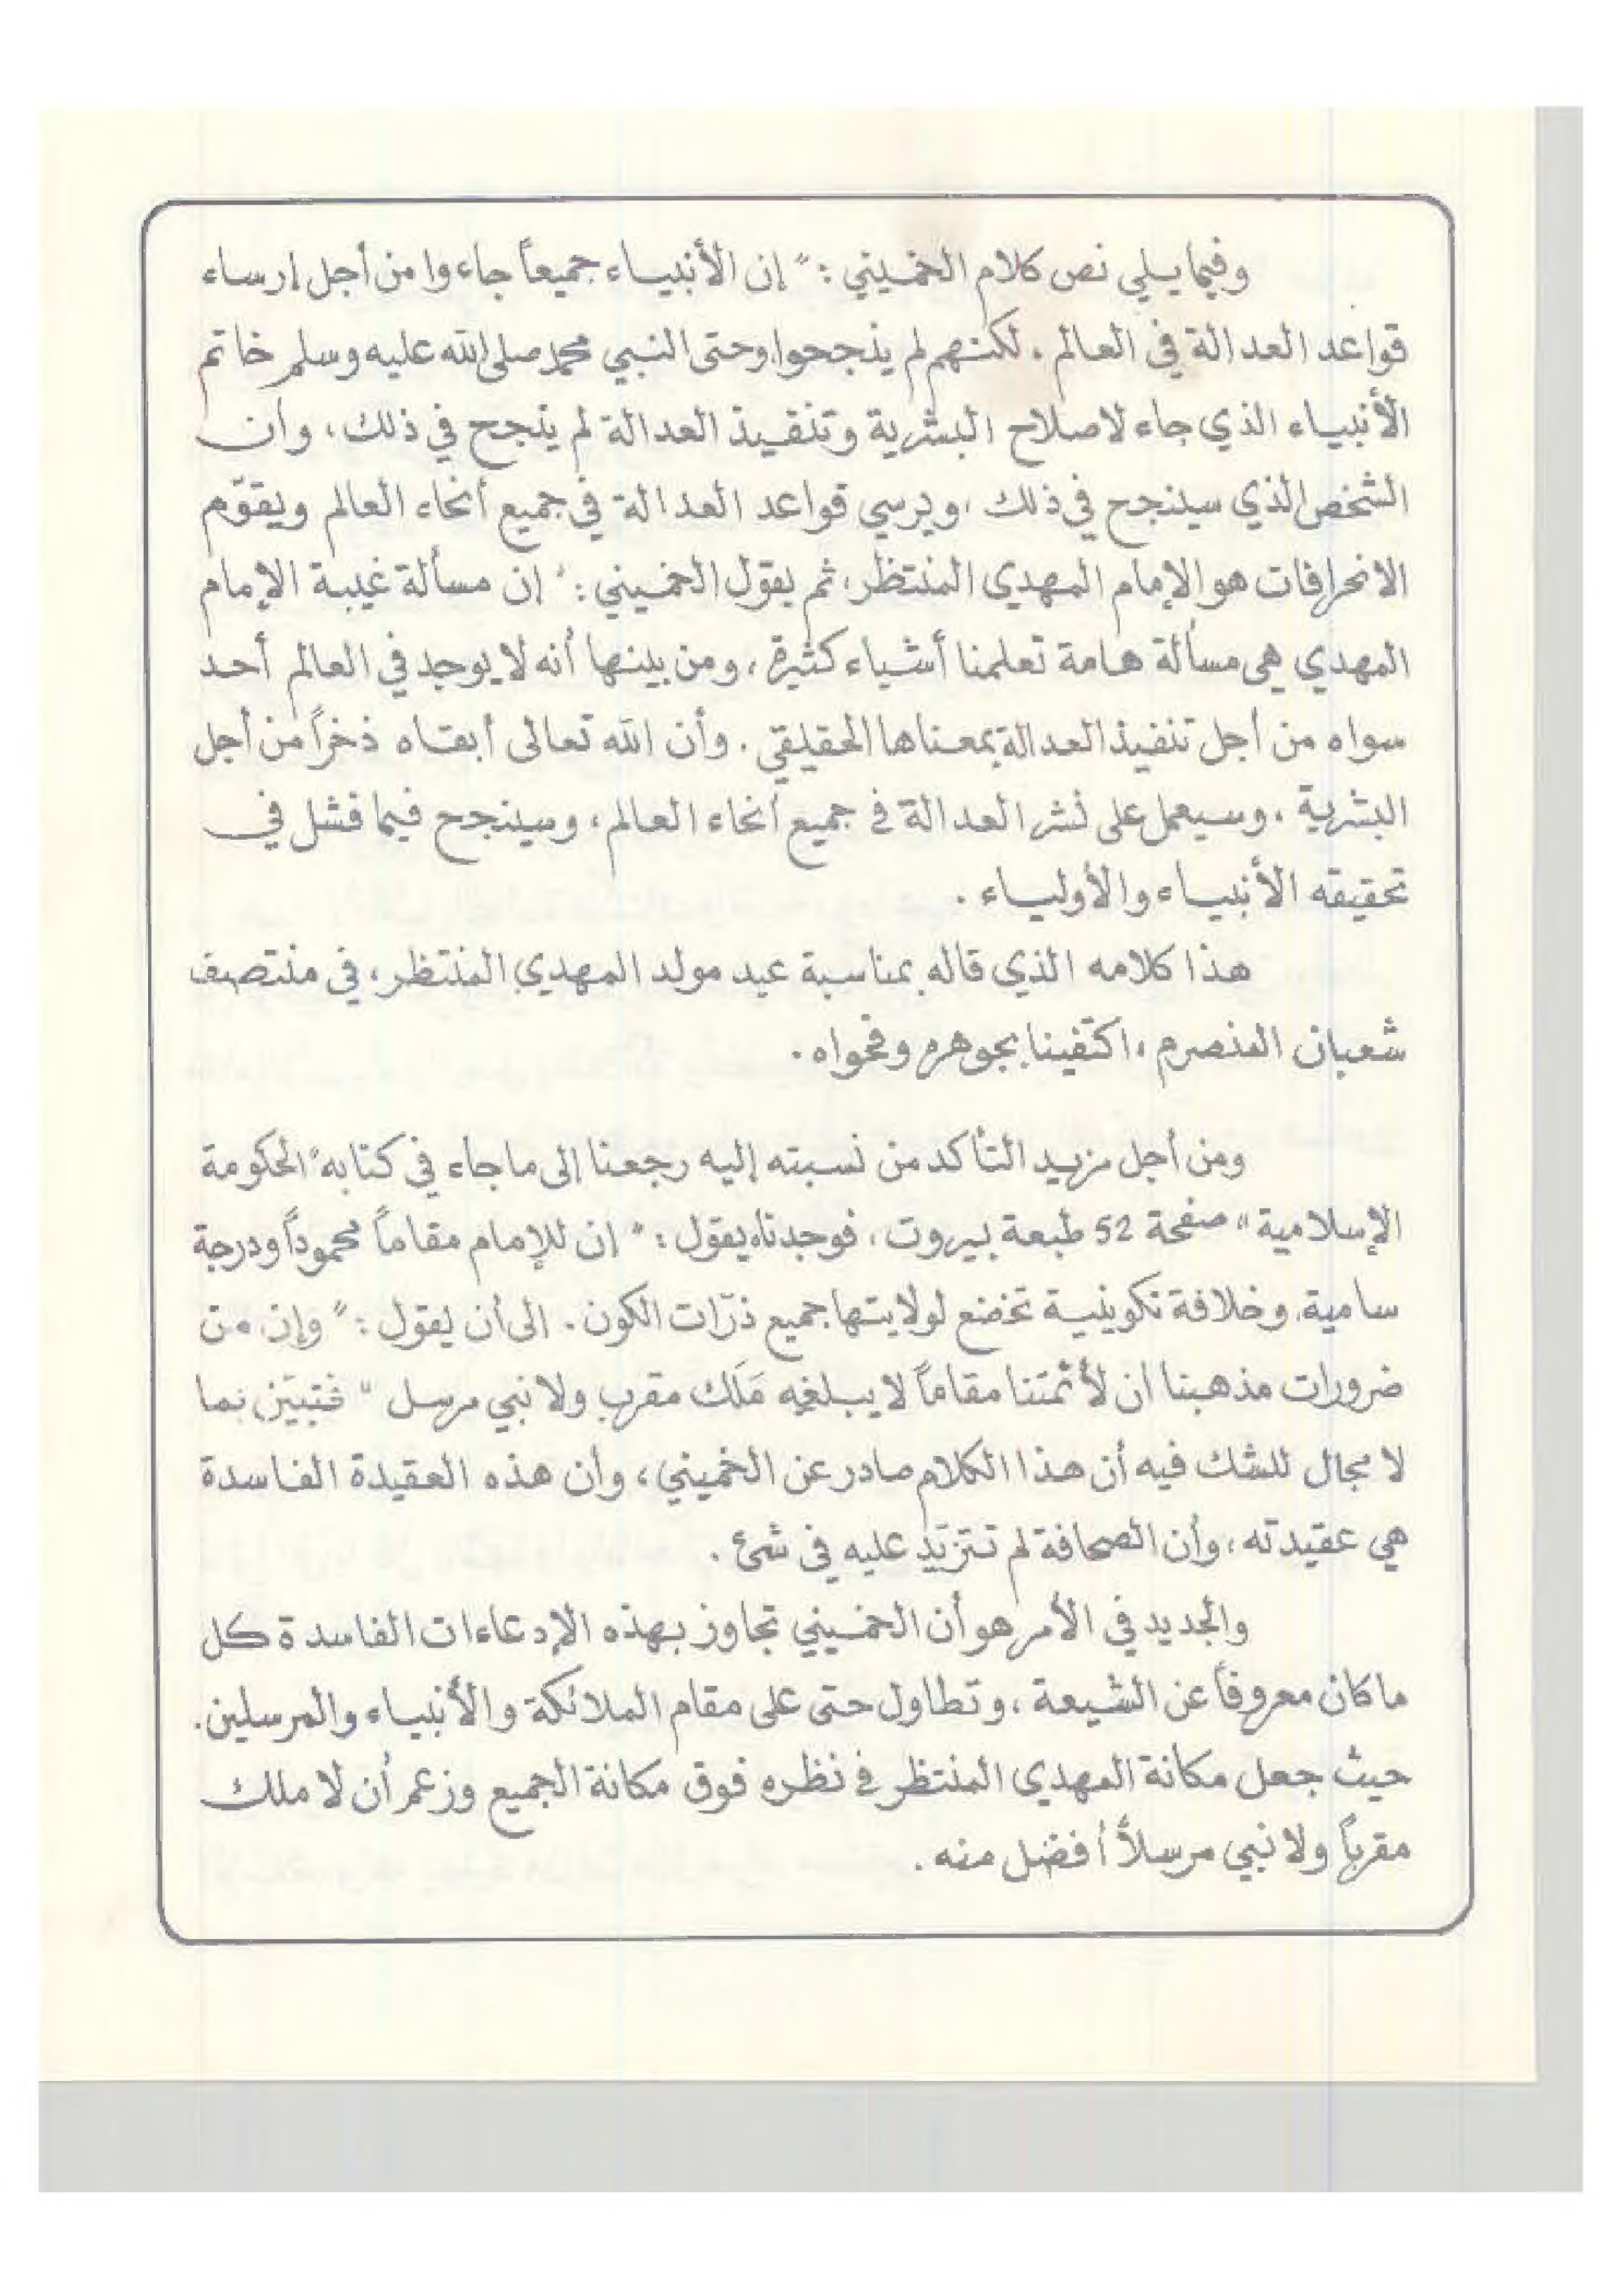 وفيما يلي نص كلام الخميني : " إن الأنبياء جميعاً جاءوا من أجل إرساء
قواعد العدالة في العالم . لكنهم لم ينجحوا وحتى النبي محمد صلى الله عليه وسلم خاتم
الأنبياء الذي جاء لاصلاح البشرية وتنفيذ العدالة لم ينجح في ذلك ، وان
الشخص الذي سينجح في ذلك ، ويرسي قواعد العدالة في جميع أنحاء العالم ويقوّم
الانحرافات هو الإمام المهدي المنتظر ، ثم يقول الخميني : " إن مسألة غيبة الإمام
المهدي هي مسألة هامة تعلمنا أشياء كثيرة ، ومن بينها أنه لا يوجد في العالم أحد
سواه من أجل تنفيذ العدالة بمعناها الحقيقي . وأن الله تعالى أبقاه ذخراً من أجل
البشرية ، وسيعمل على نشر العدالة في جميع أنحاء العالم ، وسينجح فيما فشل في
تحقيقه الأنبياء والأولياء .
هذا كلامه الذي قاله بمناسبة عيد مولد المهدي المنتظر ، في منتصف
شعبان المنصرم ، اكتفينا بجوهره وفحواه .
ومن أجل مزيد التأكد من نسبته إليه رجعنا إلى ما جاء في كتابه " الحكومة
الإسلامية " صفحة 52 طبعة بيروت ، فوجدناه يقول : " إن للإمام مقاماً محموداً ودرجة
سامية ، وخلافة تكوينية تخضع لولايتها جميع ذرّات الكون . الى أن يقول : " وإن من
ضرورات مذهبنا ان لأئمتنا مقاماً لا يبلغه مَلَك مقرب ولا نبي مرسل " فتبيّن بما
لا مجال للشك فيه أن هذا الكلام صادر عن الخميني ، وأن هذه العقيدة الفاسدة
هي عقيدته ، وأن الصحافة لم تتزيّد عليه في شئ .
والجديد في الأمر هو أن الخميني تجاوز بهذه الإدعاءات الفاسدة كل
ما كان معروفاً عن الشيعة ، وتطاول حتى على مقام الملائكة والأنبياء والمرسلين .
حيث جعل مكانة المهدي المنتظر في نظره فوق مكانة الجميع وزعم أن لا ملك
مقرباً ولا نبي مرسلاً أفضل منه .